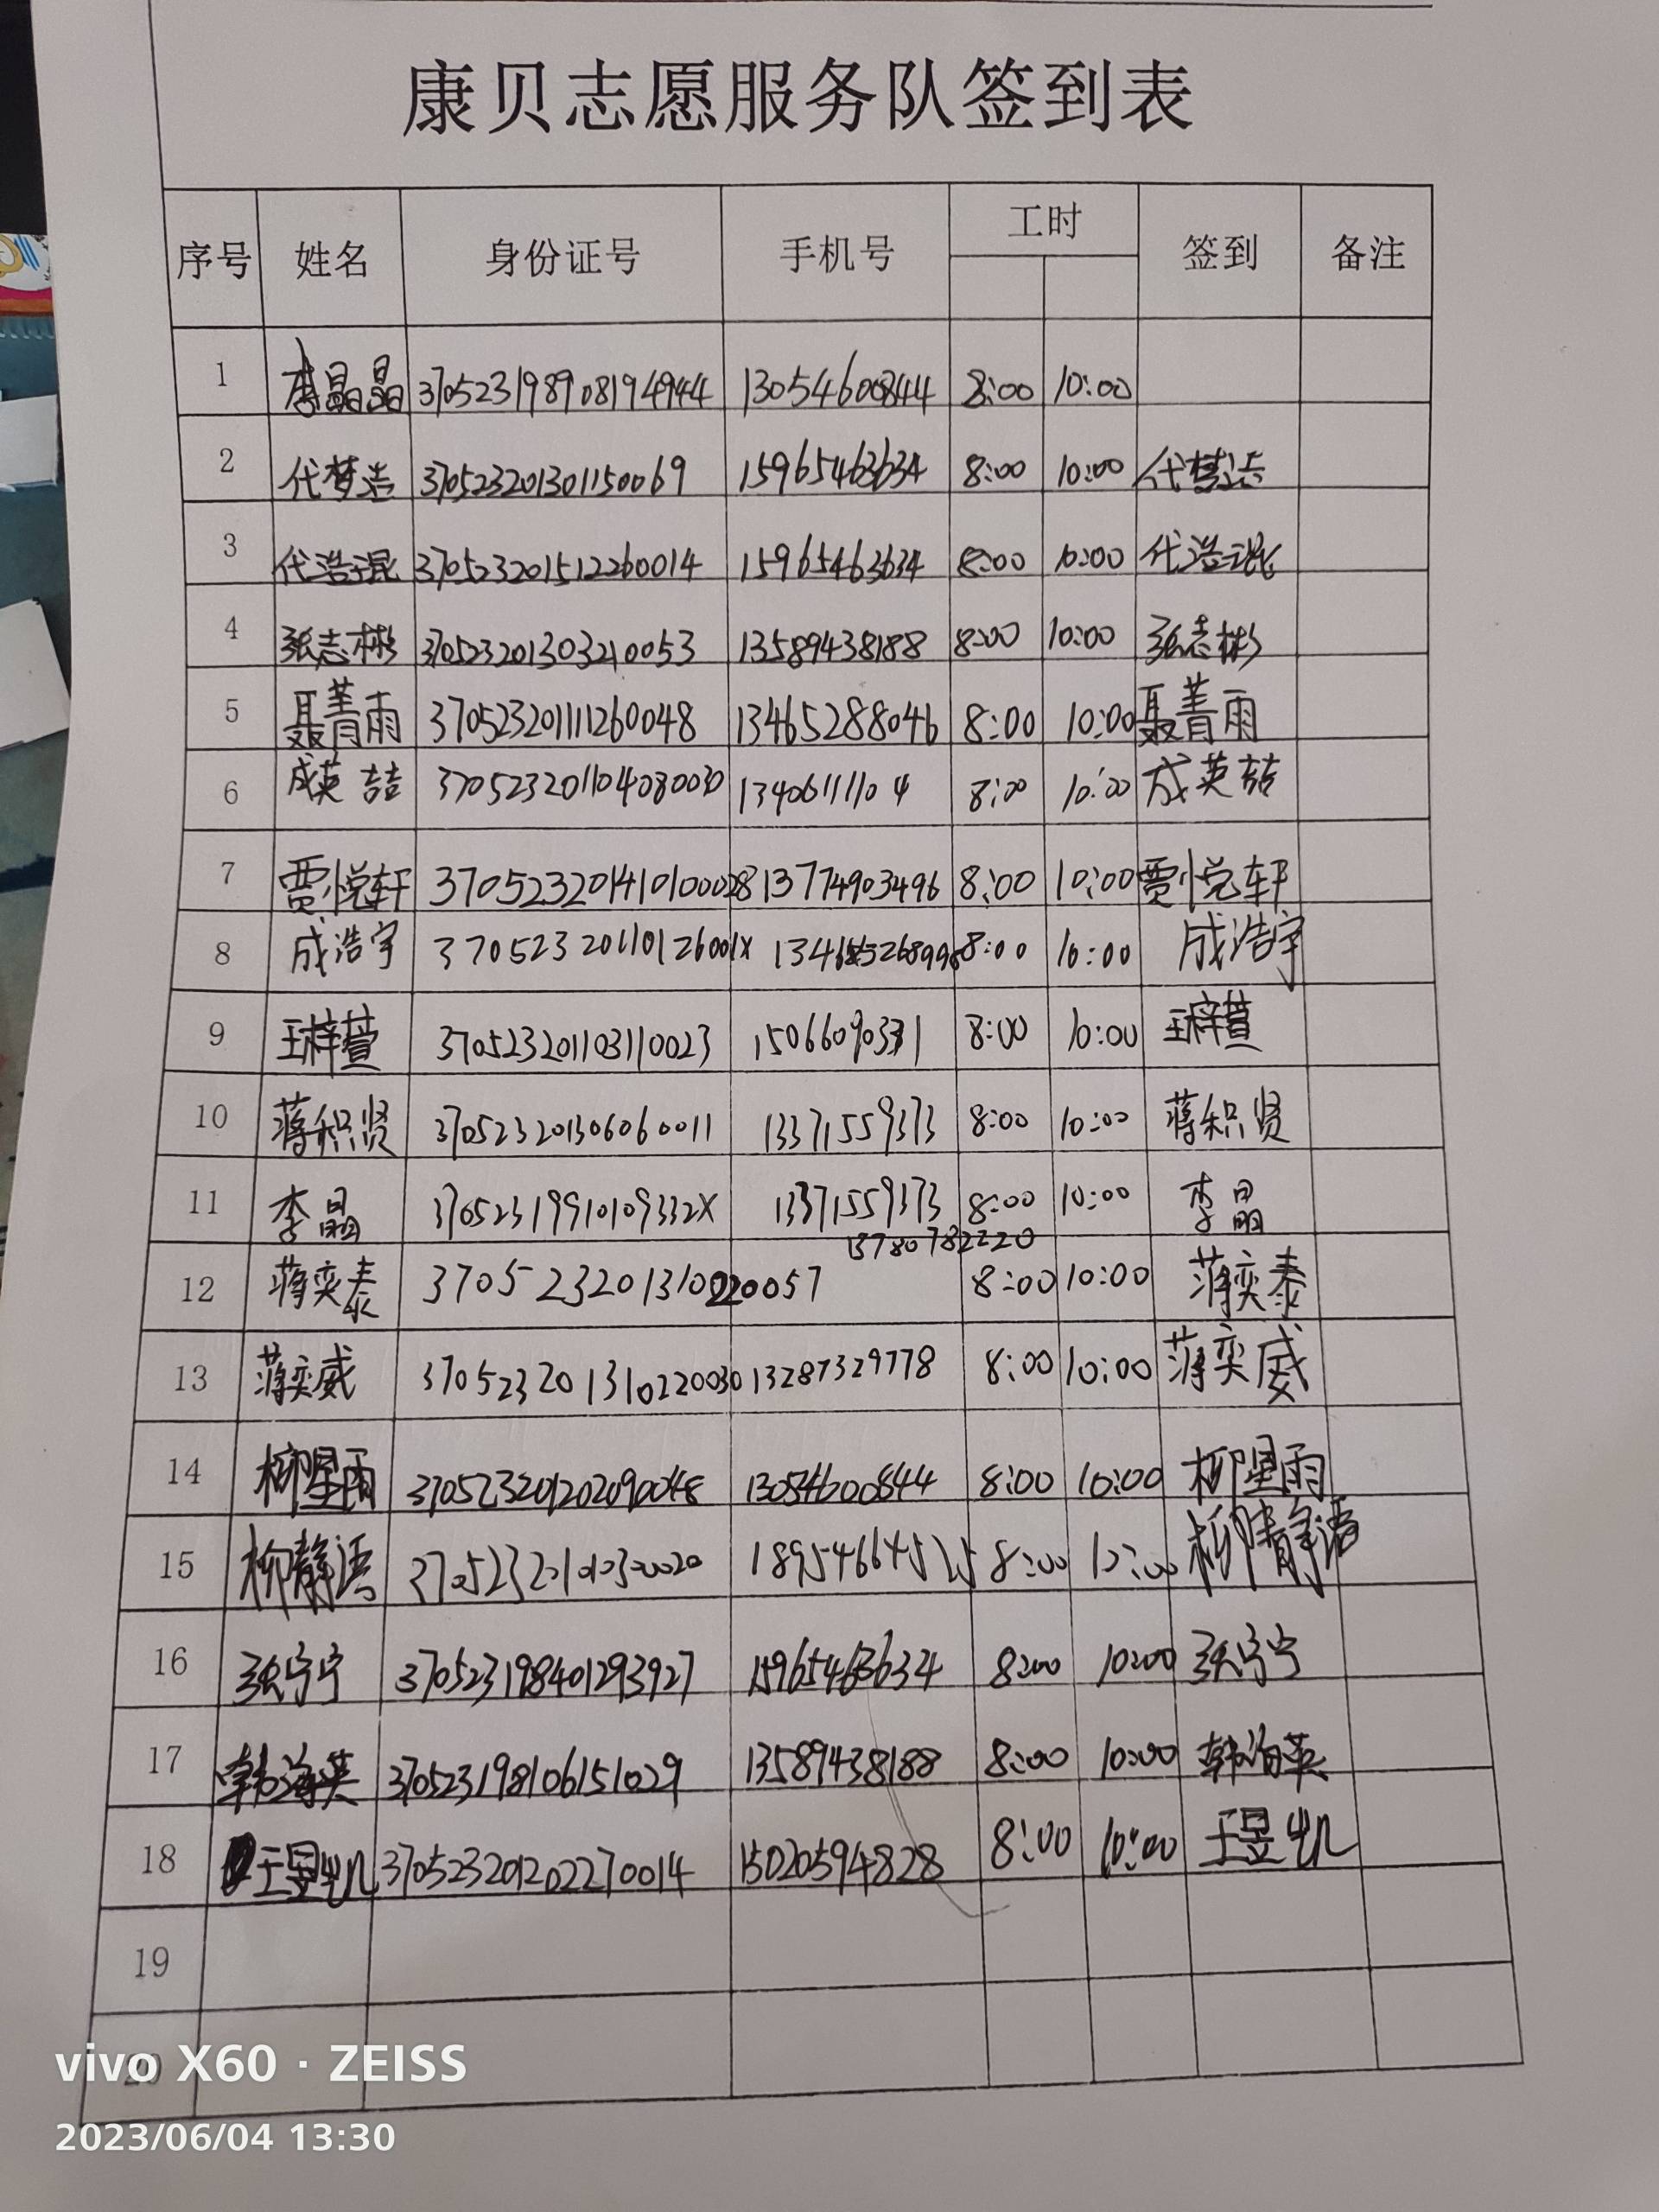 康贝志愿服务队签到表
序号 姓名 身份证号 手机号 工时 签到 备注
1 李晶晶 370523198908194944 13054600844 8:00 10:00
2 代梦洁 370523201301150069 15965463634 8:00 10:00 代梦洁
3 代浩琨 370523201512260014 15965463634 8:00 10:00 代浩琨
4 张志彬 370523201303210053 13589438188 8:00 10:00 张志彬
5 聂菁雨 370523201111260048 13465288046 8:00 10:00 聂菁雨
6 成英喆 370523201104080030 13406111104 8:00 10:00 成英喆
7 贾悦轩 370523201410100028 13774903496 8:00 10:00 贾悦轩
8 成浩宇 37052320110126001X 8:00 10:00 成浩宇
9 王梓萱 370523201103110023 15066090331 8:00 10:00 王梓萱
10 蒋积贤 370523201306060011 13371559373 8:00 10:00 蒋积贤
11 李晶 37052319910109332X 13371559373 8:00 10:00 李晶
13780782220
12 蒋奕泰 370523201310220057 8:00 10:00 蒋奕泰
13 蒋奕威 370523201310220030 13287329778 8:00 10:00 蒋奕威
14 柳星雨 370523201202090048 13054600844 8:00 10:00 柳星雨
15 柳静语 8:00 10:00 柳静语
16 张宁宁 370523198401293927 15965463634 8:00 10:00 张宁宁
17 韩海英 370523198106151029 13589438188 8:00 10:00 韩海英
18 王昱凯 370523201202270014 15020594828 8:00 10:00 王昱凯
19
20
vivo X60 · ZEISS
2023/06/04 13:30